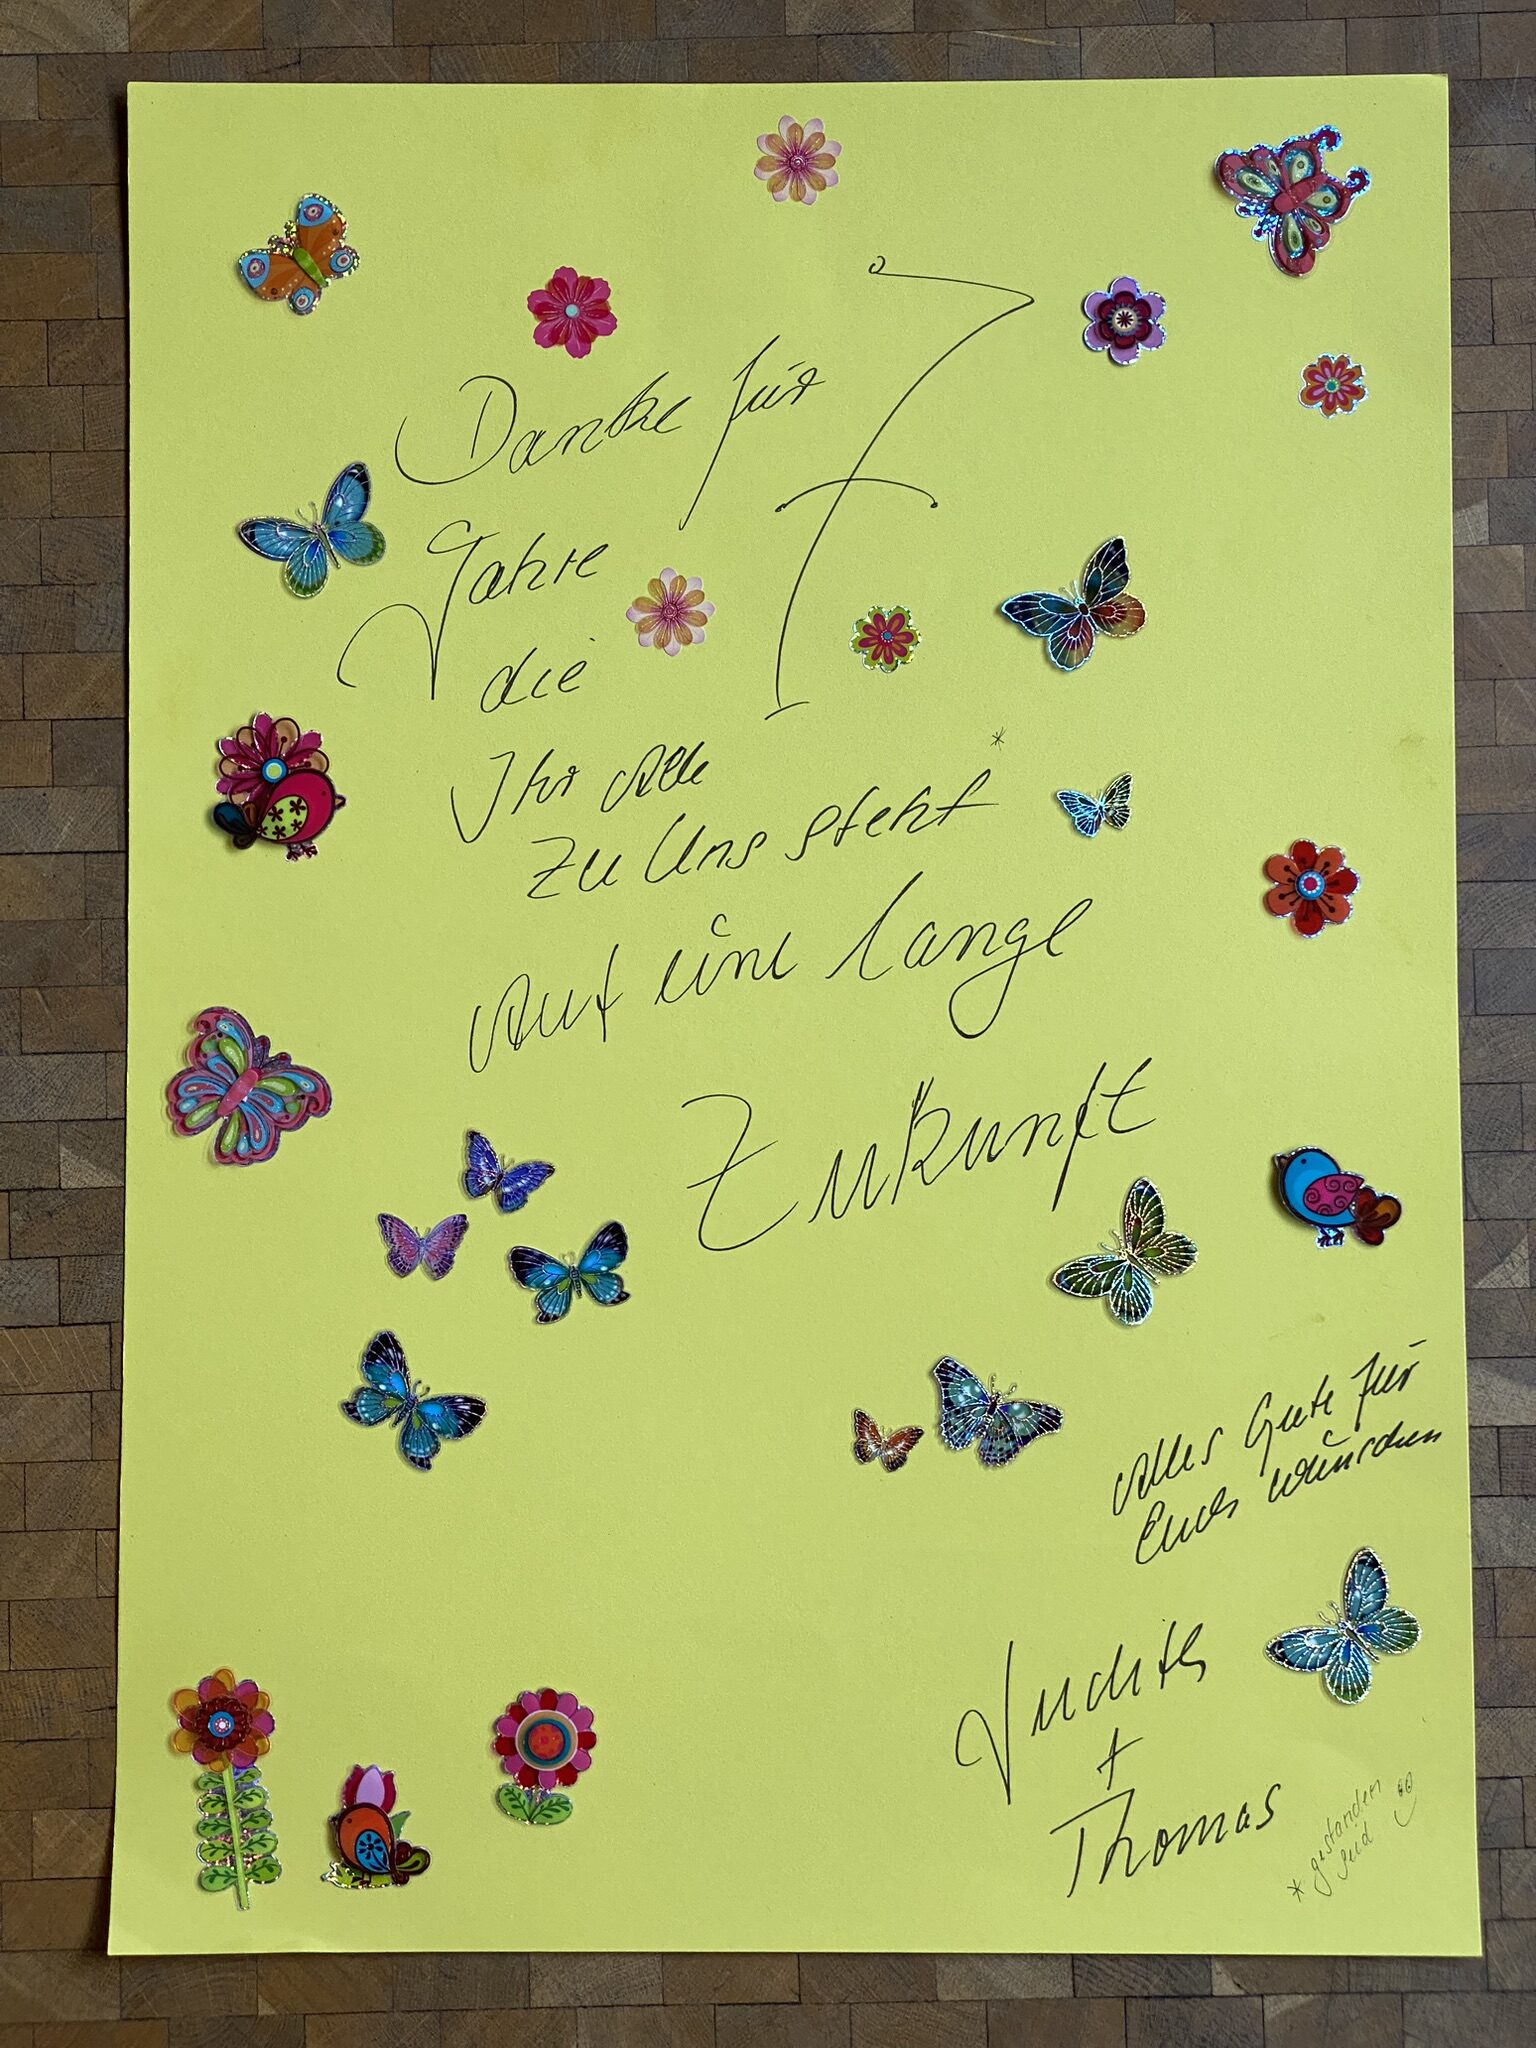 Danke für 7
Jahre
die
Ihr Alle
zu Uns steht *
Auf eine lange
Zukunft
Alles Gute für
Euch wünschen
+
Thomas
* gestanden
seid